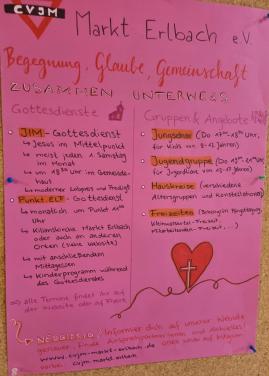 CVJM
Markt Erlbach e.V.
Begegnung, Glaube, Gemeinschaft
ZUSAMMEN UNTERWEGS
Gottesdienste
JIM-Gottesdienst
Jesus im Mittelpunkt
meist jeden 1. Samstag
im Monat
um 19 Uhr im Gemeinde-
haus
moderner Lobpreis und Predigt
Punkt.ELF-Gottesdienst
monatlich um Punkt 11 Uhr
Kilianskirche Markt Erlbach
oder auch an anderen
Orten (siehe Website)
mit anschließendem
Mittagessen
Kinderprogramm während
des Gottesdienstes
⇒ alle Termine findet ihr auf
der Website oder auf Flyern
Gruppen & Angebote
Jungschar (Do Uhr,
für Kids von 8-12 Jahren)
Jugendgruppe (Do
für Jugendliche von 13-17 Jahren)
Hauskreise (verschiedene
Altersgruppen und Konstellationen)
Freizeiten
NEUGIERIG? Informier dich auf unserer Website
genauer, finde Ansprechpartner:innen und Aktuelles!
www.cvjm-markt-erlbach.de oder schau auf Instagram
vorbei: cvjm.markt.erlbach